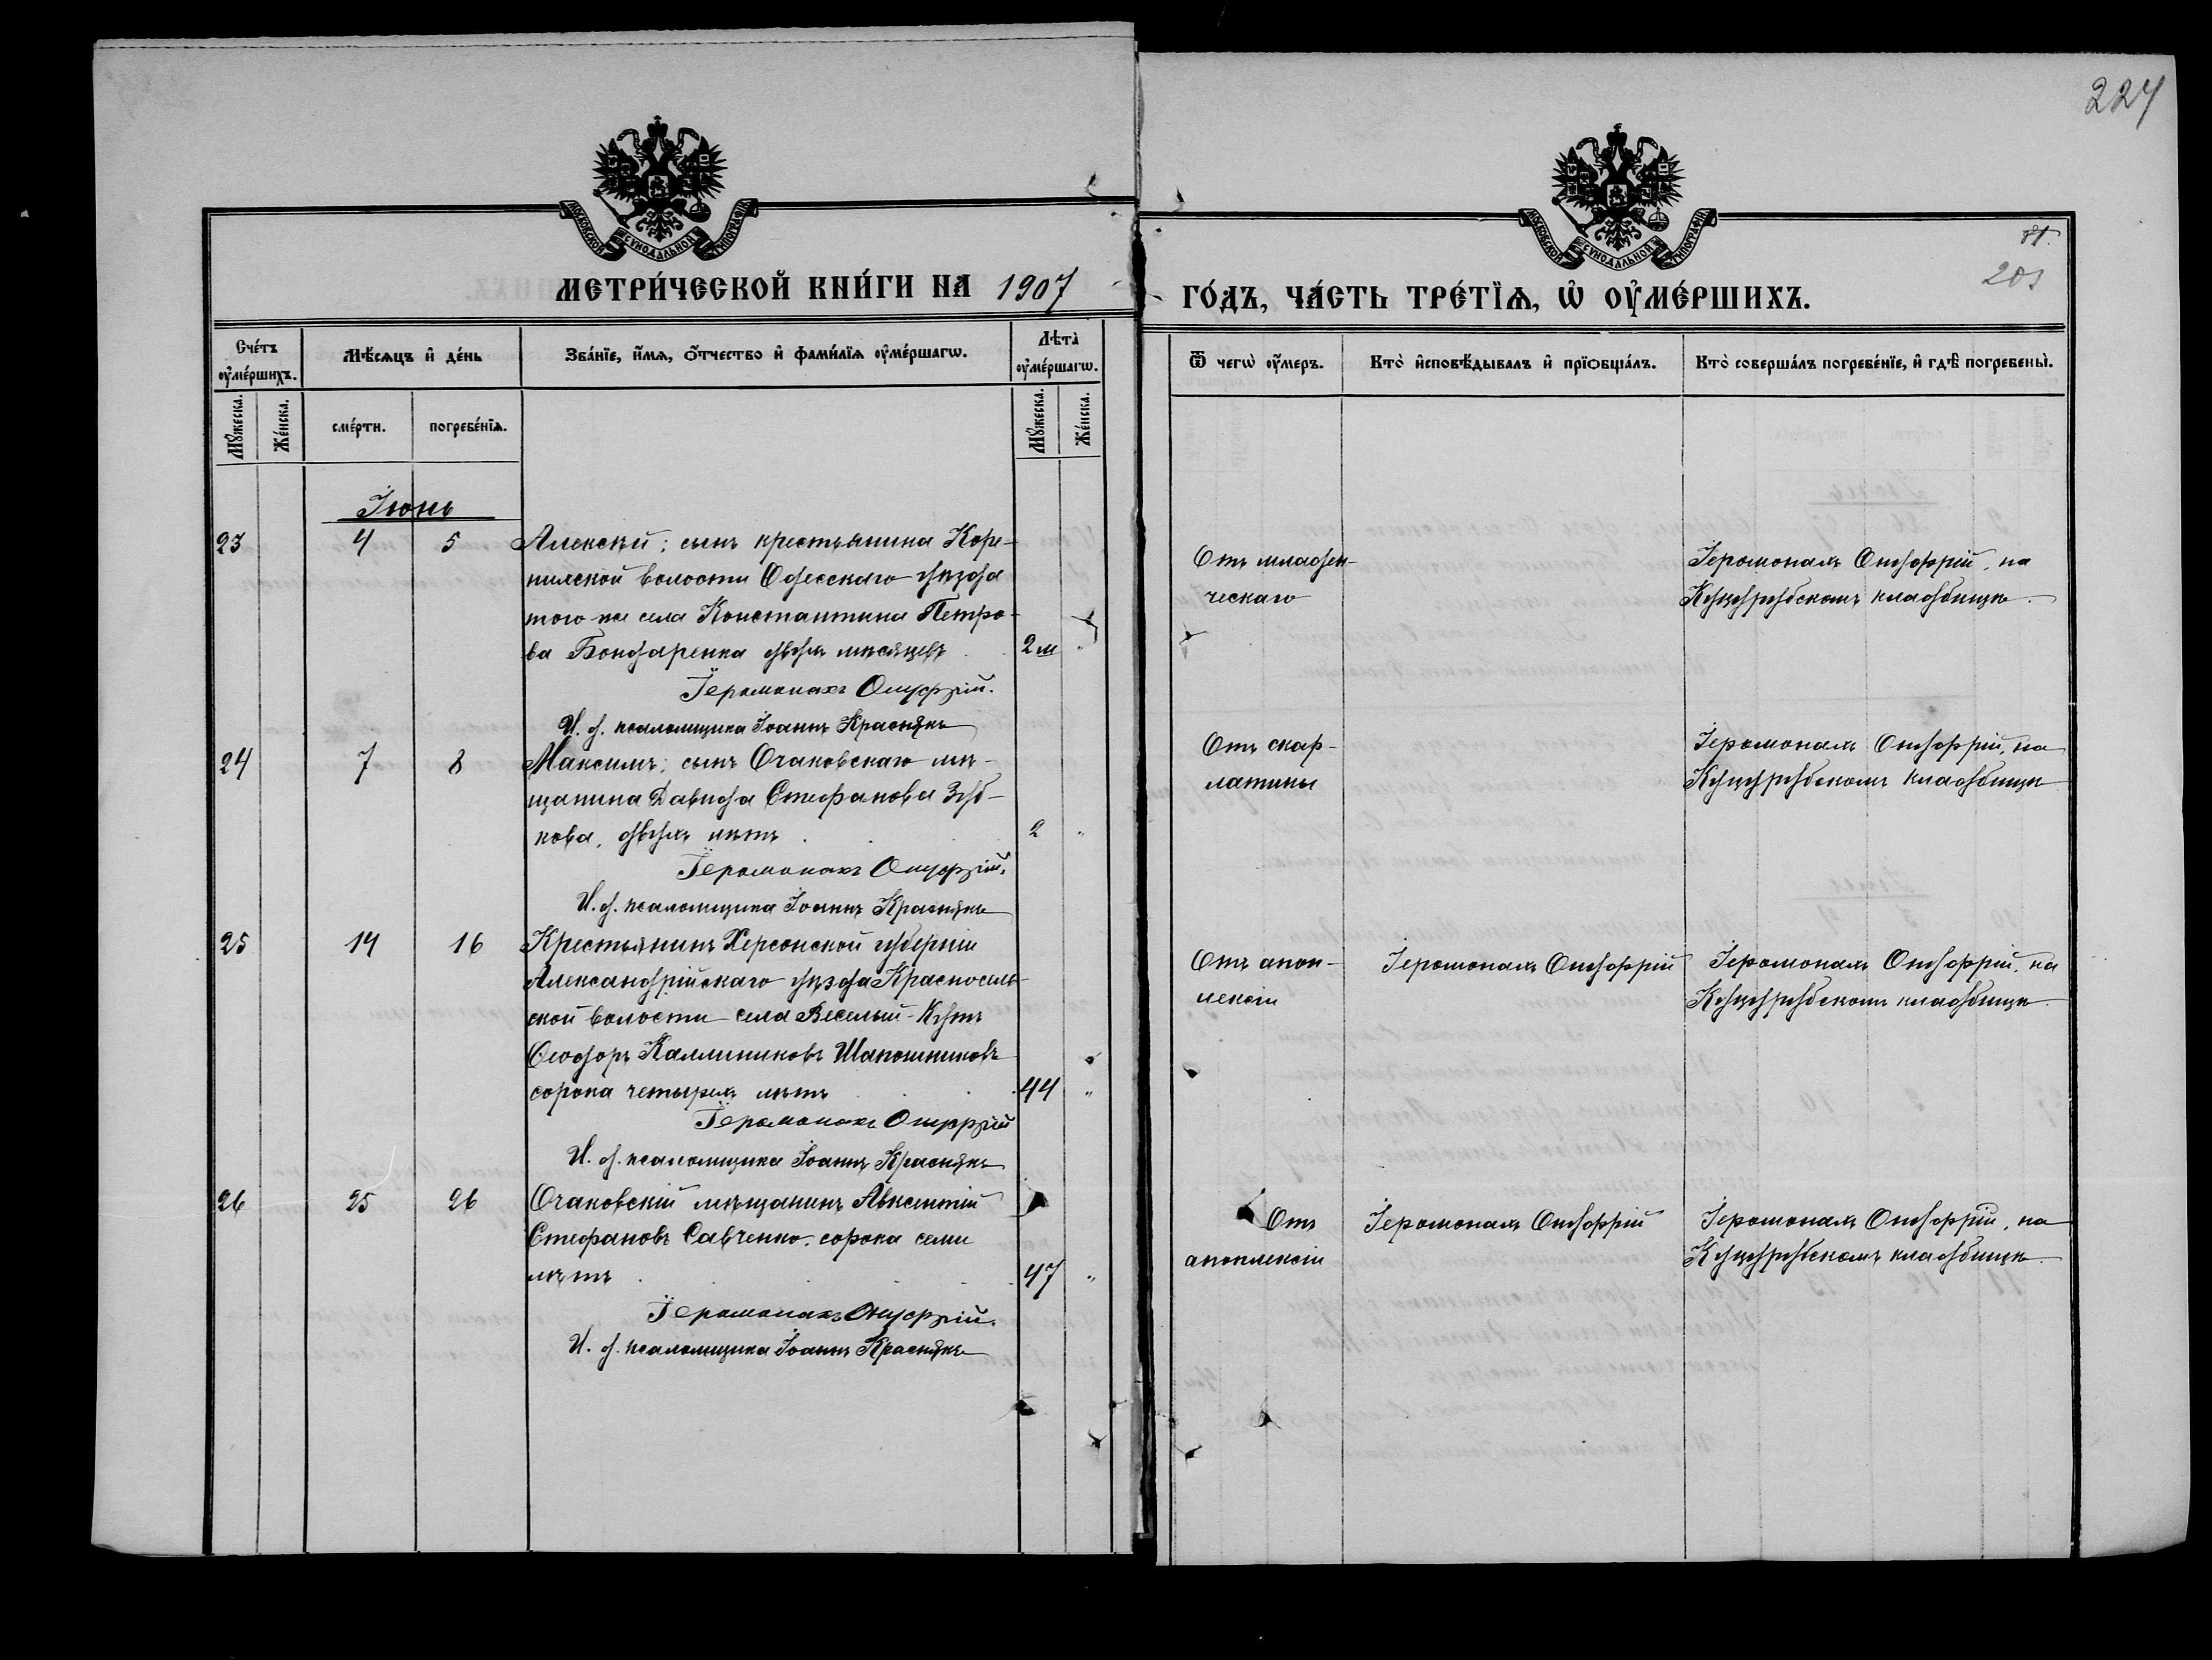 224
МОСКОВСКОЙ СУНОДАЛЬНОЙ ТИПОГРАФІИ
МОСКОВСКОЙ СУНОДАЛЬНОЙ ТИПОГРАФІИ
81.
201
МЕТРИ́ЧЕСКОЙ КНИ́ГИ НА 1907
ГО́ДЪ, ЧА́СТЬ ТРЕ́ТЇѦ, Ѡ҆ ОУ҆МЕ́РШИХЪ.
Сче́тъ оу҆ме́ршихъ.
Мѣ́сѧцъ и҆ де́нь
Зва́нїе, и҆́мѧ, ѻ҆́тчество и҆ фами́лїѧ оу҆ме́ршагѡ.
Лѣта̀ оу҆ме́ршагѡ.
Ѿ чегѡ̀ оу҆́меръ.
Кто̀ и҆сповѣ́дывалъ и҆ прїѻбща́лъ.
Кто̀ соверша́лъ погребе́нїе, и҆ гдѣ̀ погребены̀.
Му́жеска.
Же́нска.
сме́рти.
погребе́нїѧ.
Му́жеска.
Же́нска.
Іюнь
23 4 5 Алексѣй; сынъ крестьянина Коре-
нихской волости Одесскаго уѣзда
того-же села Константина Петро-
ва Бондаренка двухъ мѣсяцевъ 2м "
Іеромонахъ Онуфрій.
И. д. псаломщика Іоаннъ Краснякъ
Отъ младен-
ческаго
Іеромонахъ Онуфрій, на
Куцурубскомъ кладбищѣ.
24 7 8 Максимъ; сынъ Очаковскаго мѣ-
щанина Давида Стефанова Зуб-
кова, двухъ лѣтъ 2 "
Іеромонахъ Онуфрій.
И. д. псаломщика Іоаннъ Краснякъ
Отъ скар-
латины
Іеромонахъ Онуфрій, на
Куцурубскомъ кладбищѣ
25 14 16 Крестьянинъ Херсонской губерніи
Александрійскаго уѣзда Красносель-
ской волости села Веселый-Кутъ
Ѳеодоръ Каллиниковъ Шапошниковъ
сорока четырехъ лѣтъ 44 "
Іеромонахъ Онуфрій
И. д. псаломщика Іоаннъ Краснякъ
Отъ апоп-
лексіи
Іеромонахъ Онуфрій
Іеромонахъ Онуфрій, на
Куцурубскомъ кладбищѣ.
26 25 26 Очаковскій мѣщанинъ Авксентій
Стефановъ Савченко. сорока семи
лѣтъ 47 "
Іеромонахъ Онуфрій.
И. д. псаломщика Іоаннъ Краснякъ
Отъ
апоплексіи
Іеромонахъ Онуфрій
Іеромонахъ Онуфрій, на
Куцурубскомъ кладбищѣ.